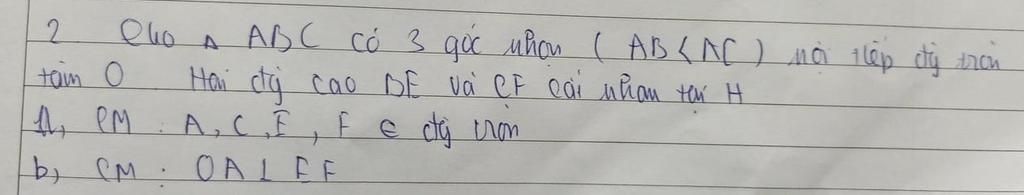 2 Cho △ ABC có 3 góc nhọn ( AB < AC ) nội tiếp đg tròn
tâm O Hai đg cao BE và CF cắt nhau tại H
a, CM : A, C, E, F ∈ đg tròn
b, CM : OA ⊥ EF